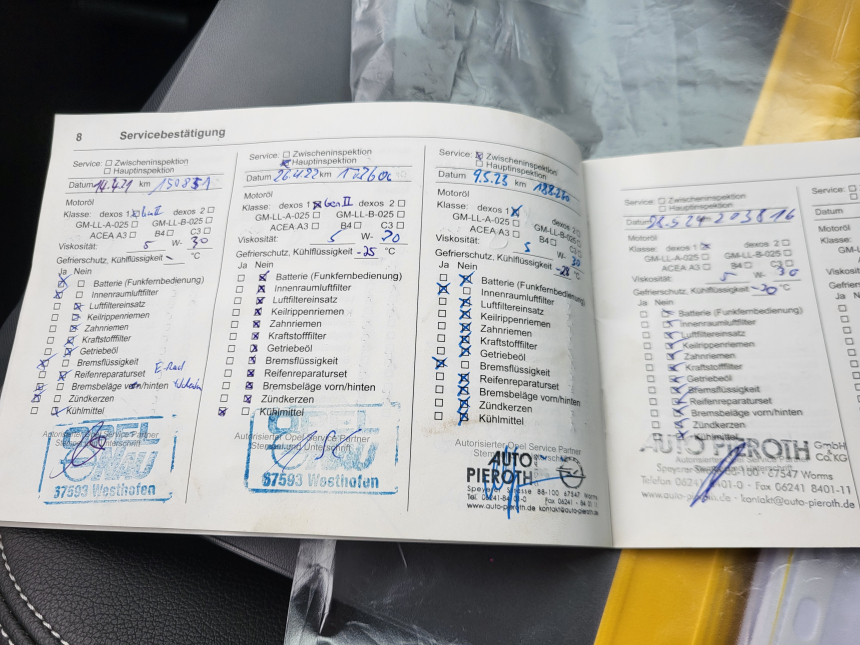 8 Servicebestätigung
Service: ☐ Zwischeninspektion
☐ Hauptinspektion
Datum 14.4.21 km 150851
Motoröl
Klasse: dexos 1 ☒ Gen II dexos 2 ☐
GM-LL-A-025 ☐ GM-LL-B-025 ☐
ACEA A3 ☐ B4 ☐ C3 ☐
Viskosität: 5 W- 30
Gefrierschutz, Kühlflüssigkeit - °C
Ja Nein
Batterie (Funkfernbedienung)
Innenraumluftfilter
Luftfiltereinsatz
Keilrippenriemen
Zahnriemen
Kraftstofffilter
Getriebeöl
Bremsflüssigkeit
Reifenreparaturset
Bremsbeläge vorn/hinten
Zündkerzen
Kühlmittel
Autorisierter Opel Service Partner
Stempel und Unterschrift
OPEL
67593 Westhofen
Service: ☐ Zwischeninspektion
☒ Hauptinspektion
Datum 26.4.22 km
Motoröl
Klasse: dexos 1 ☒ Gen II dexos 2 ☐
GM-LL-A-025 ☐ GM-LL-B-025 ☐
ACEA A3 ☐ B4 ☐ C3 ☐
Viskosität: 5 W- 30
Gefrierschutz, Kühlflüssigkeit -25 °C
Ja Nein
☐ ☒ Batterie (Funkfernbedienung)
☐ ☒ Innenraumluftfilter
☐ ☒ Luftfiltereinsatz
☐ ☒ Keilrippenriemen
☐ ☒ Zahnriemen
☐ ☒ Kraftstofffilter
☐ ☒ Getriebeöl
☐ ☒ Bremsflüssigkeit
☐ ☒ Reifenreparaturset
☐ ☒ Bremsbeläge vorn/hinten
☐ ☒ Zündkerzen
☒ ☐ Kühlmittel
Autorisierter Opel Service Partner
Stempel und Unterschrift
OPEL
67593 Westhofen
Service: ☒ Zwischeninspektion
☐ Hauptinspektion
Datum 9.5.23 km
Motoröl
Klasse: dexos 1 ☒ dexos 2 ☐
GM-LL-A-025 ☐ GM-LL-B-025 ☐
ACEA A3 ☐ B4 ☐ C3 ☐
Viskosität: 5 W- 30
Gefrierschutz, Kühlflüssigkeit -28 °C
Ja Nein
☐ ☒ Batterie (Funkfernbedienung)
☒ ☐ Innenraumluftfilter
☐ ☒ Luftfiltereinsatz
☐ ☒ Keilrippenriemen
☐ ☒ Zahnriemen
☐ ☒ Kraftstofffilter
☐ ☒ Getriebeöl
☒ ☐ Bremsflüssigkeit
☐ ☒ Reifenreparaturset
☐ ☒ Bremsbeläge vorn/hinten
☐ ☒ Zündkerzen
☐ ☒ Kühlmittel
Autorisierter Opel Service Partner
AUTO
PIEROTH
Speyerer Strasse 88-100 67547 Worms
www.auto-pieroth.de kontakt@auto-pieroth.de
Service: ☐ Zwischeninspektion
Hauptinspektion
Datum km 203816
Motoröl
Klasse: dexos 1 ☒ dexos 2 ☐
GM-LL-A-025 ☐ GM-LL-B-025 ☐
ACEA A3 ☐ B4 ☐ C3 ☐
Viskosität: 5 W- 30
Gefrierschutz, Kühlflüssigkeit °C
Ja Nein
☐ ☒ Batterie (Funkfernbedienung)
☐ ☒ Innenraumluftfilter
☐ ☒ Luftfiltereinsatz
☐ ☒ Keilrippenriemen
☐ ☒ Zahnriemen
☐ ☒ Kraftstofffilter
☐ ☒ Getriebeöl
☐ ☒ Bremsflüssigkeit
☐ ☒ Reifenreparaturset
☐ ☒ Bremsbeläge vorn/hinten
☐ ☒ Zündkerzen
☐ ☒ Kühlmittel
AUTO PIEROTH GmbH
Co. KG
Speyerer 88-100 · 67547 Worms
Telefon 06241 8401-0 · Fax 06241 8401-11
www.auto-pieroth.de - kontakt@auto-pieroth.de
Service: ☐
Datum
Motoröl
Klasse:
GM-LL
Viskosität:
Gefriersch
Ja Nein